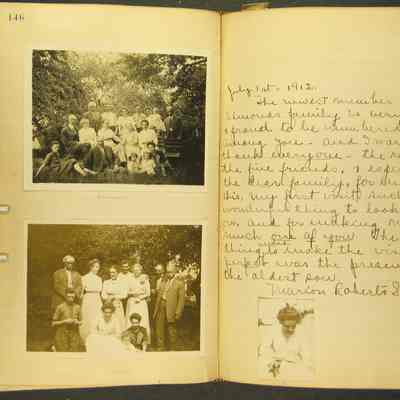 146
July 1st - 1912.
The newest member
Simonds family is very
proud to be numbered
among you - and I wan
thank everyone - the re
the five friends, & espe
the dear family, for
this, my first visit such
wonderful thing to look
on, and for making m
much one of you. The
thing to make the visit
perfect was the presen
the oldest son.
Marion Roberts S